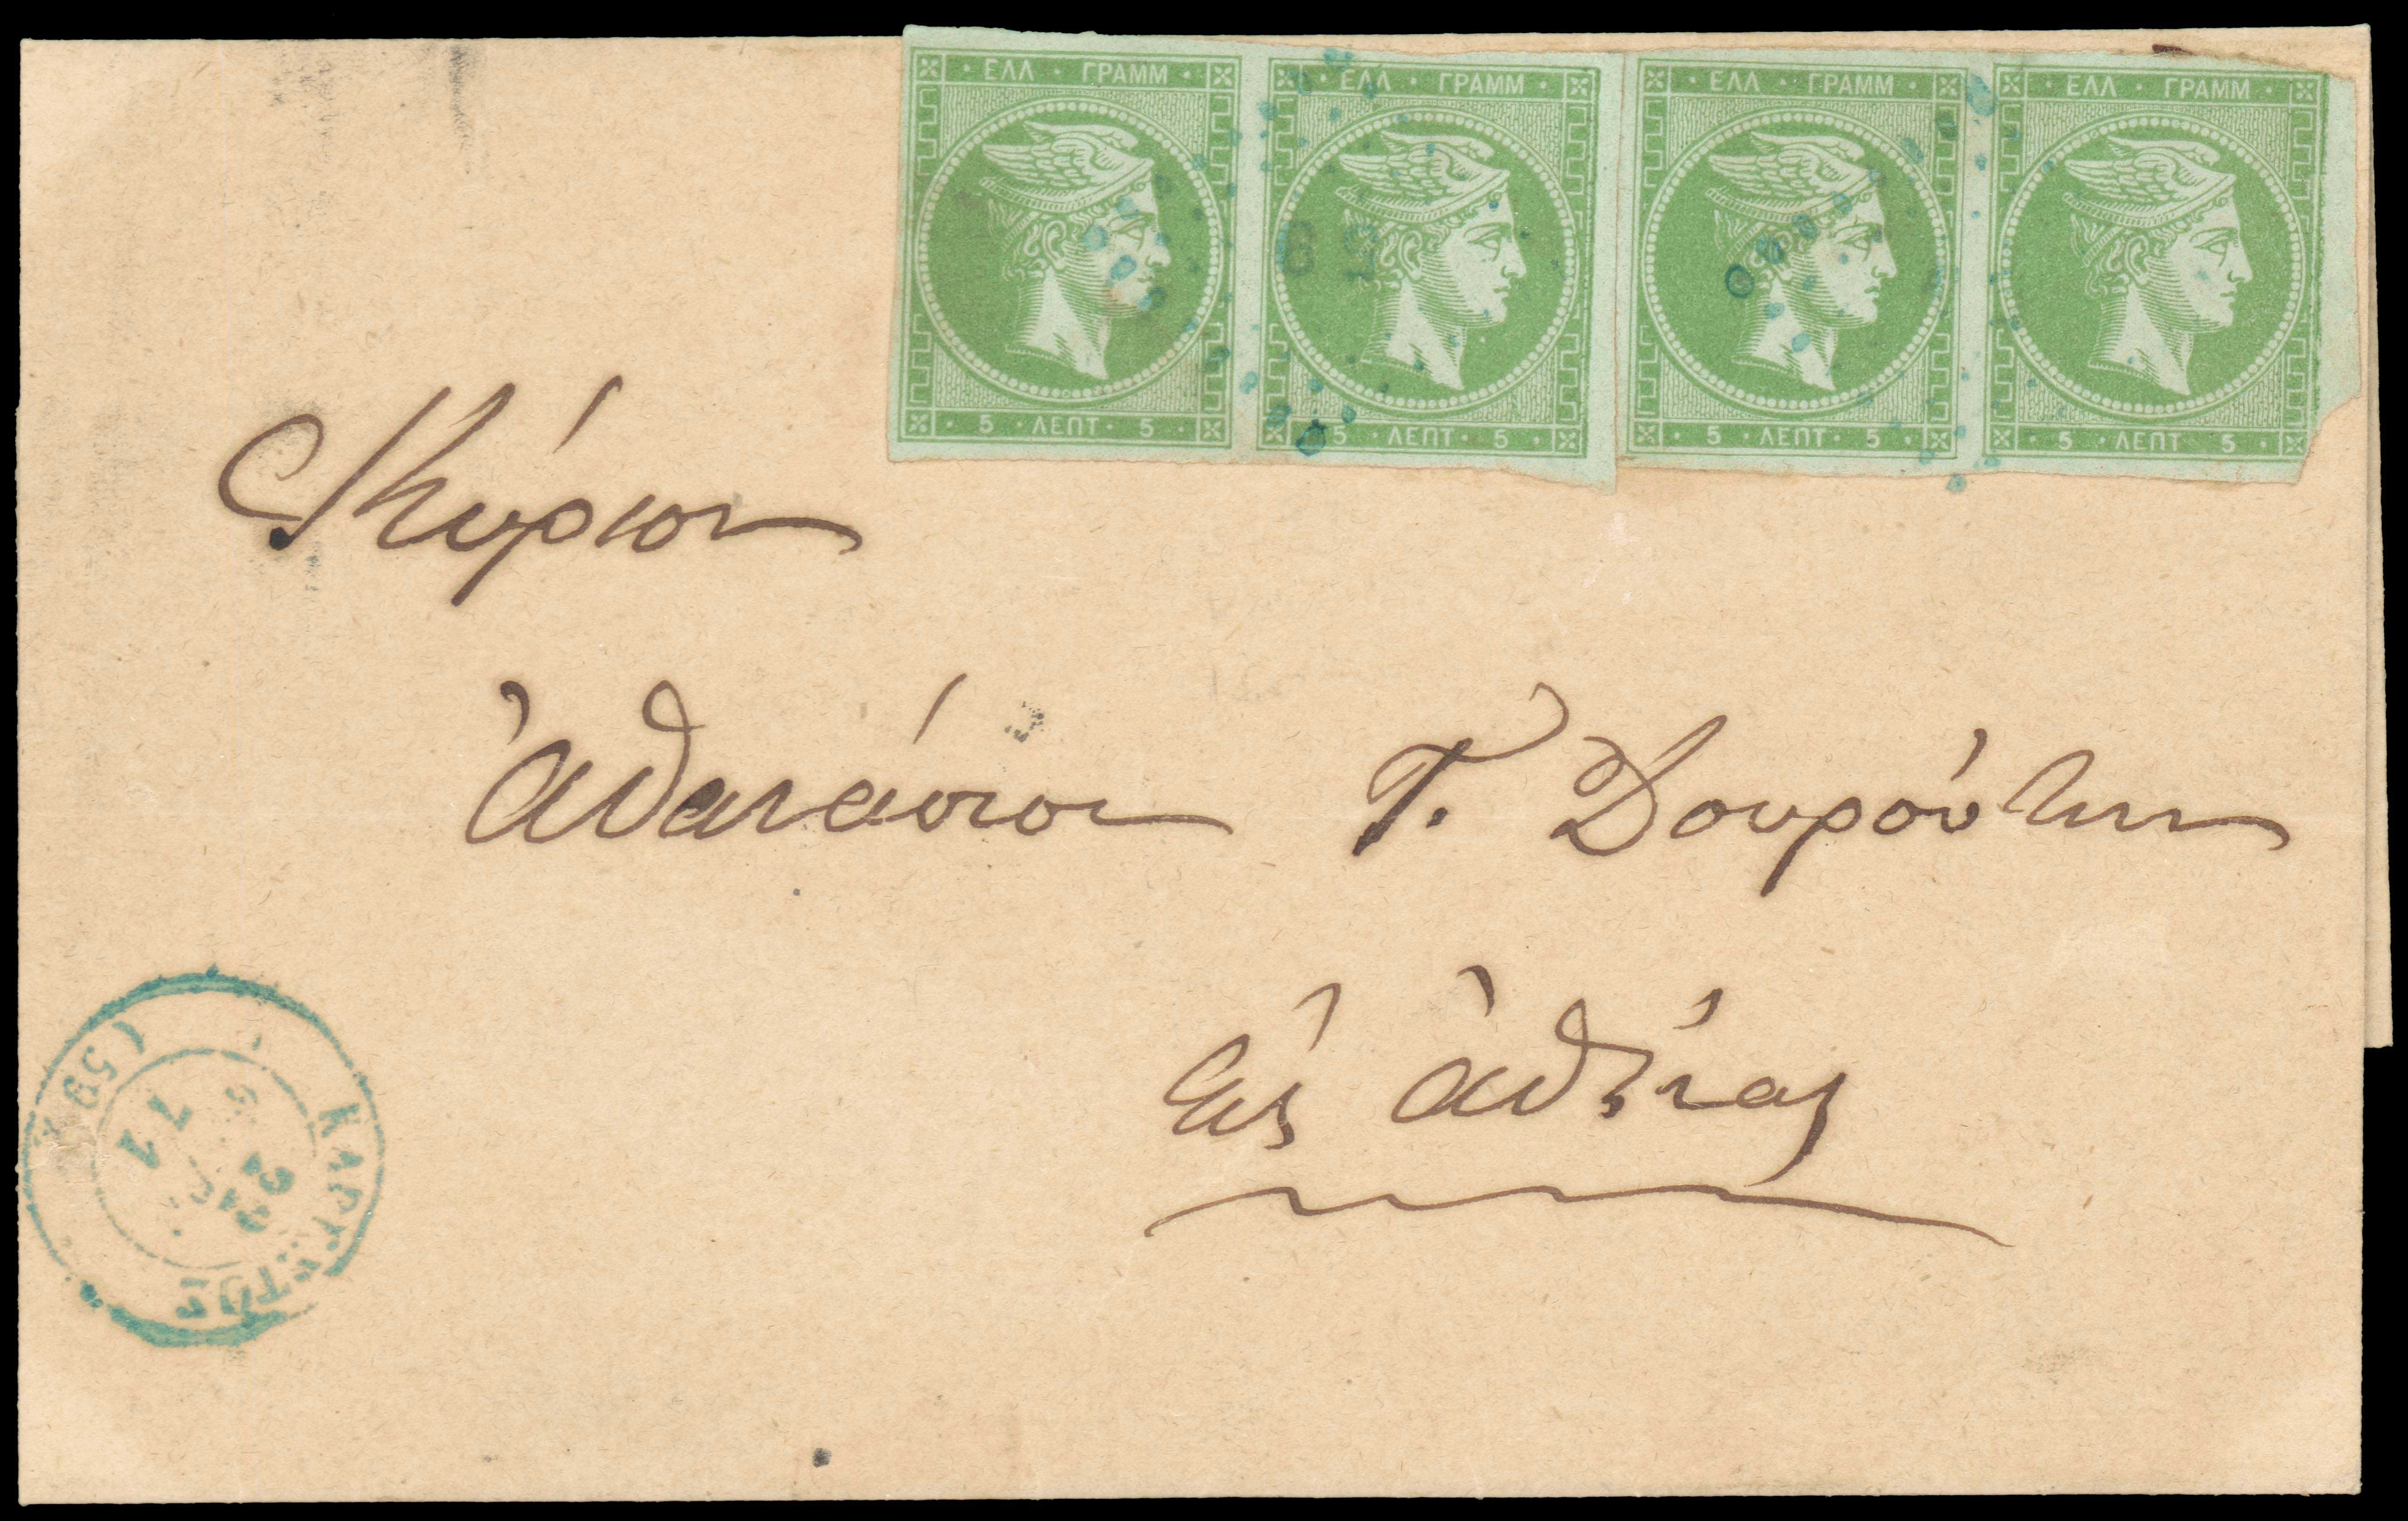 ΕΛΛ · ΓΡΑΜΜ · ΕΛΛ · ΓΡΑΜΜ · ΕΛΛ · ΓΡΑΜΜ · ΕΛΛ · ΓΡΑΜΜ
5 · ΛΕΠΤ · 5 · 5 · ΛΕΠΤ · 5 · 5 · ΛΕΠΤ · 5 · 5 · ΛΕΠΤ · 5
Κύριον
Ἀθανάσιον Γ. Δουρούτην
εἰς Ἀθήνας
(59)
22
71